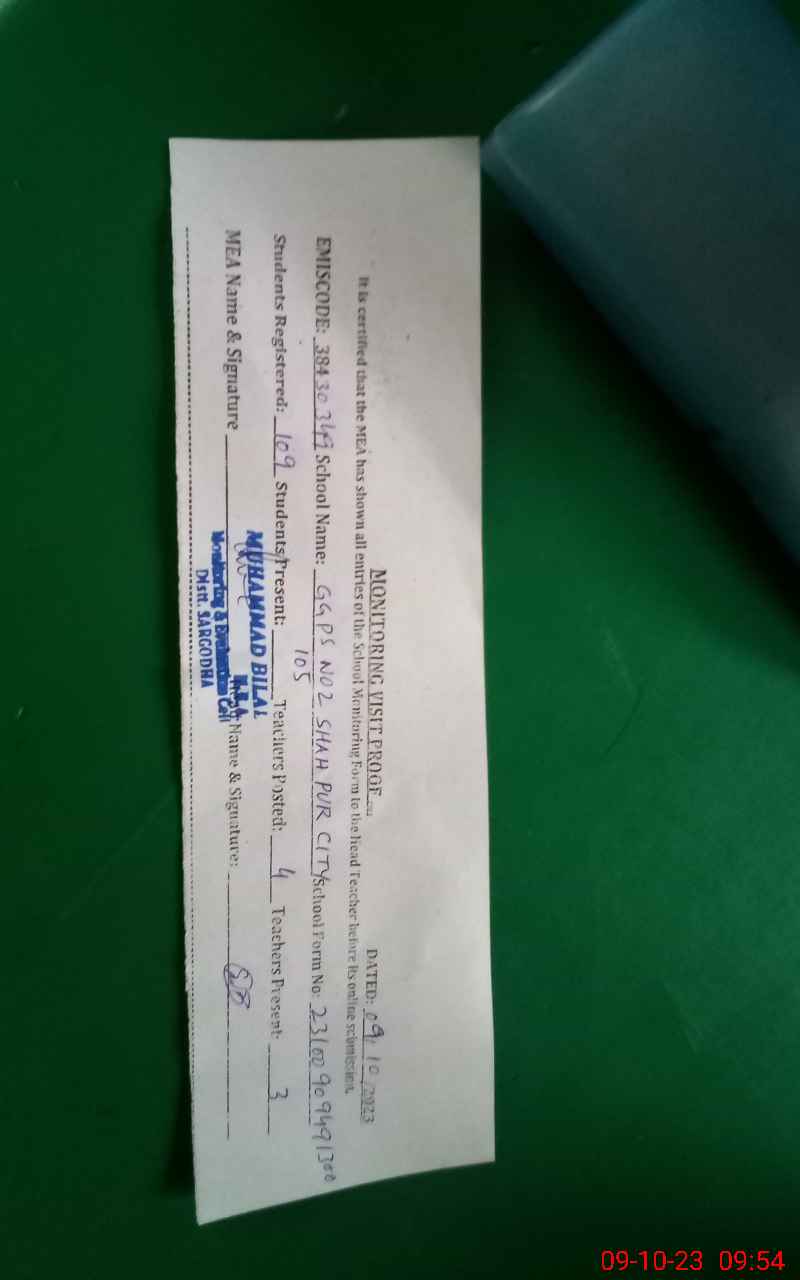 MONITORING VISIT PROOF
DATED: 09/10/2023
It is certified that the MEA has shown all entries of the School Monitoring Form to the Head Teacher before its online submission.
EMISCODE: 38430349 School Name: GGPS NO2 SHAH PUR CITY School Form No:
Students Registered: 109 Students Present: 105 Teachers Posted: 4 Teachers Present: 3
MEA Name & Signature Name & Signature:
MUHAMMAD BILAL
M.E.A
Monitoring & Evaluation Cell
Distt. SARGODHA
09-10-23 09:54